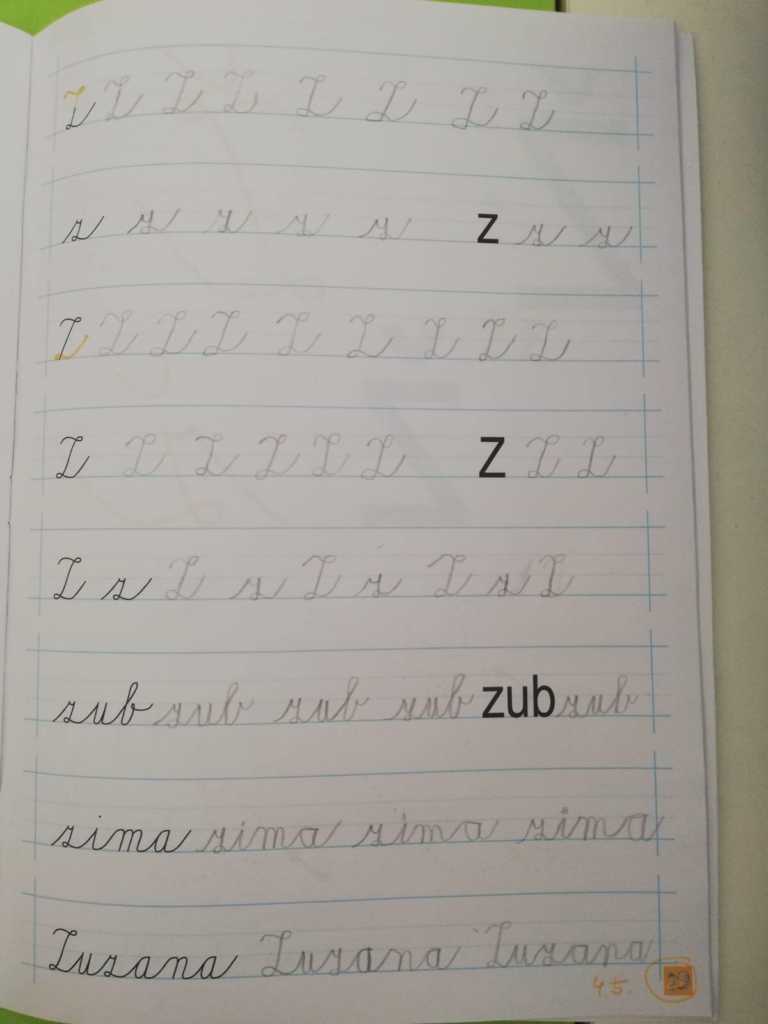 Z Z Z Z Z Z Z Z
z z z z z z z z
Z Z Z Z Z Z Z Z Z
Z Z Z Z Z Z Z Z Z
Z z Z z Z z Z z Z
zub zub zub zub zub zub
zima zima zima zima
Zuzana Zuzana Zuzana
4.5. 29